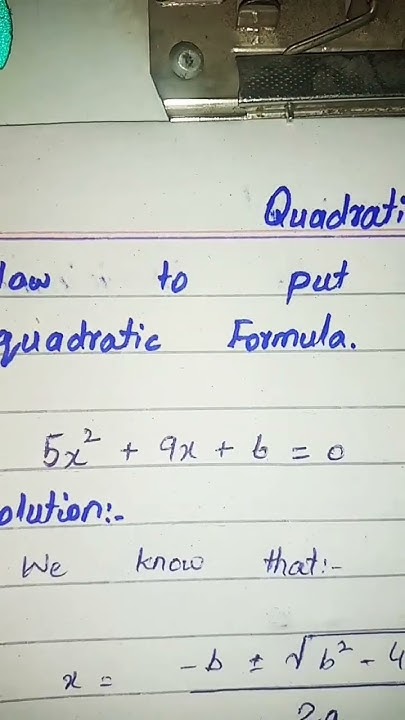 Quadrati
law to put
quadratic Formula.
5x² + 9x + 6 = 0
olution:-
We know that:-
x = -b ± √b² - 4
2a